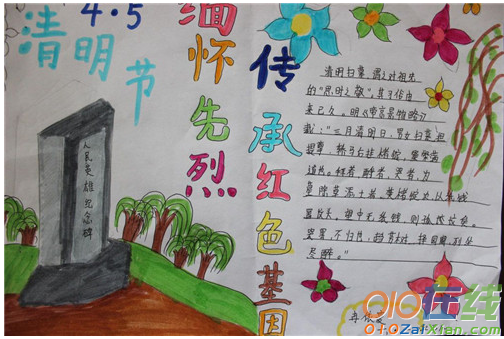 4·5
清明节
缅怀先烈
传承红色基因
人民英雄纪念碑
清明扫墓,谓之对祖先
的"思时之敬",其习俗由
来已久。明《帝京景物略》
载:"三月清明日,男女扫墓,担
提尊榼,轿马后挂楮锭,粲粲然
满道也。拜者、酹者、哭者、为
墓除草添土者,焚楮锭次,以纸钱
置坟头。望中无纸钱,则孤坟矣。
哭罢,不归也,趋芳树,择园圃,列坐
尽醉。"
010在线
010ZaiXian.com